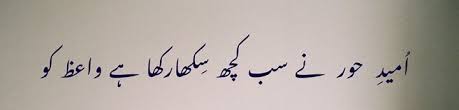 اُمیدِ حور نے سب کچھ سِکھا رکھا ہے واعظ کو